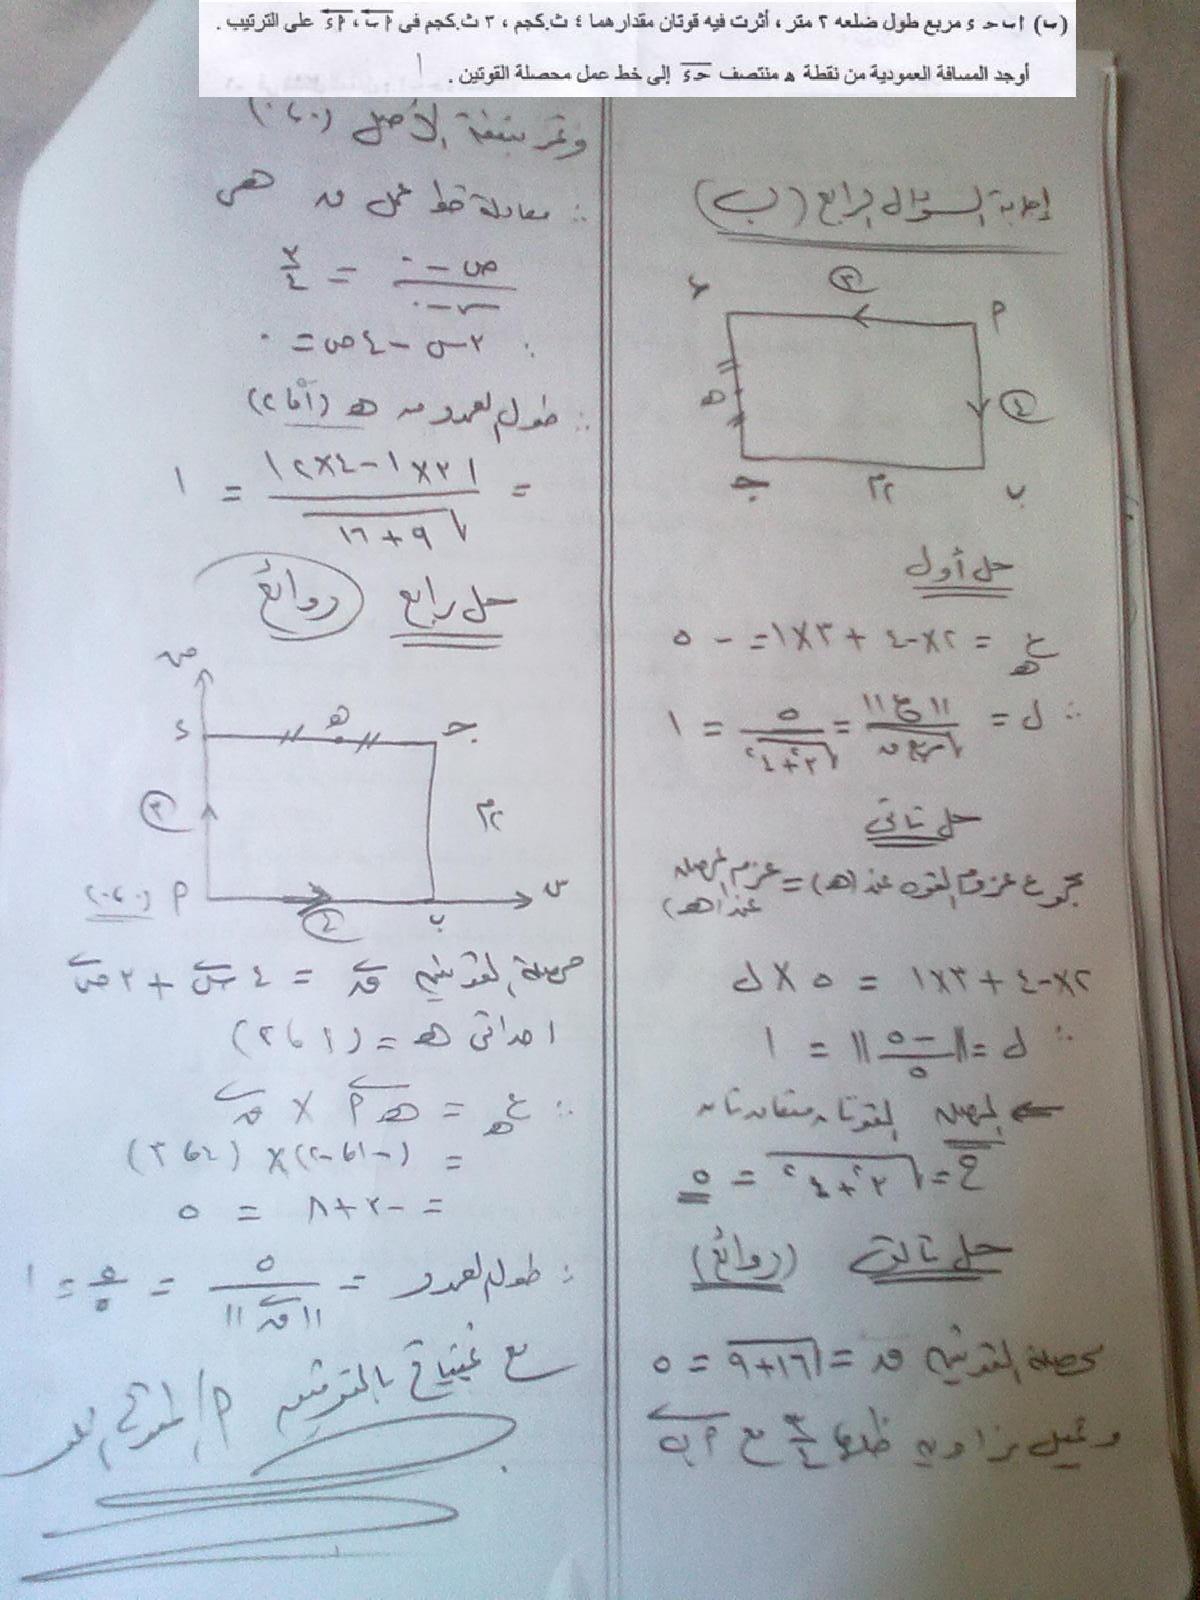 (ب) ا ب حـ ء مربع طول ضلعه ٢ متر ، أثرت فيه قوتان مقدارهما ٤ ث.كجم ، ٣ ث.كجم فى ا ب ، ا ء على الترتيب .
أوجد المسافة العمودية من نقطة هـ منتصف حـ ء إلى خط عمل محصلة القوتين .
إجابة السؤال الرابع (ب)
٣
ء
ا
هـ
٤
جـ
٢م
ب
حل أول
ع هـ = ٢×-٤ + ٣×١ = -٥
∴ ل = ||ع|| / √مربع ق = ٥ / √(٣² + ٤²) = ١
حل ثانى
مجموع عزوم القوى عند (هـ) = عزم المحصلة عند (هـ)
٢×-٤ + ٣×١ = ٥ × ل
∴ ل = ||-٥/٥|| = ١
⇐ المحصلة القوتان متعامدتان
ح = √(٣² + ٤²) = ٥
حل ثالث (روائع)
محصلة القوتين ق = √(١٦+٩) = ٥
وتميل بزاوية ظلها ٣/٤ مع ا ب
وتمر بنقطة الأصل (٠،٠)
∴ معادلة خط عمل ق هى
(ص - ٠)/(س - ٠) = ٣/٤
∴ ٣س - ٤ص = ٠
∴ طول العمود من هـ (١،٢)
= |٣×١ - ٤×٢| / √(٩+١٦) = ١
حل رابع (روائع)
ص
ء
هـ
جـ
٣
٢م
(٠،٠)
ا
٤
ب
س
محصلة القوتين ق = ٤ س + ٣ ص
احداثى هـ = (١،٢)
∴ ع هـ = هـ ا × ق
= (-١،-٢) × (٤،٣)
= -٣+٨ = ٥
∴ طول العمود = ٥ / ||ق|| = ٥/٥ = ١
مع تمنياتى بالتوفيق ا/